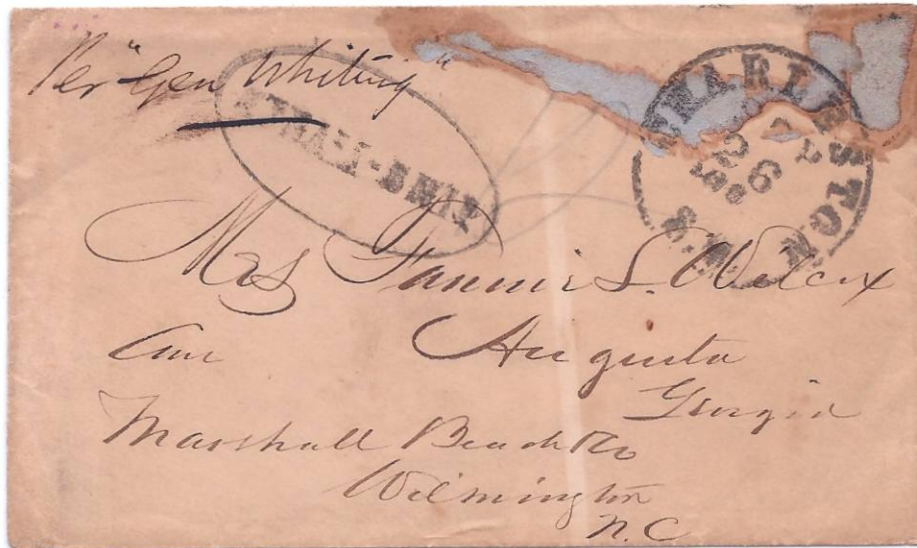 Per "Gen Whiting"
CHARLESTON S.C.
26
Mrs Fannie L. Wilcox
Care Augusta
Georgia
Marshall Beach & Co
Wilmington
N.C